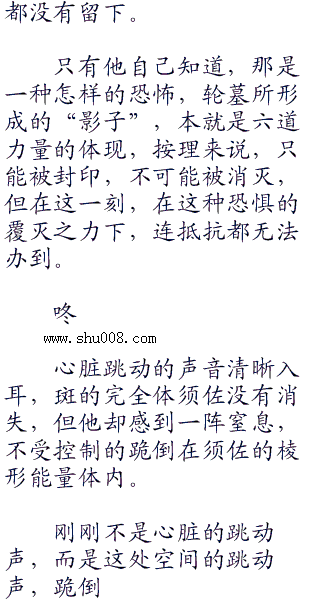 都没有留下。
只有他自己知道，那是
一种怎样的恐怖，轮墓所形
成的“影子”，本就是六道
力量的体现，按理来说，只
能被封印，不可能被消灭，
但在这一刻，在这种恐惧的
覆灭之力下，连抵抗都无法
办到。
咚
www.shu008.com
心脏跳动的声音清晰入
耳，斑的完全体须佐没有消
失，但他却感到一阵窒息，
不受控制的跪倒在须佐的棱
形能量体内。
刚刚不是心脏的跳动
声，而是这处空间的跳动
声，跪倒